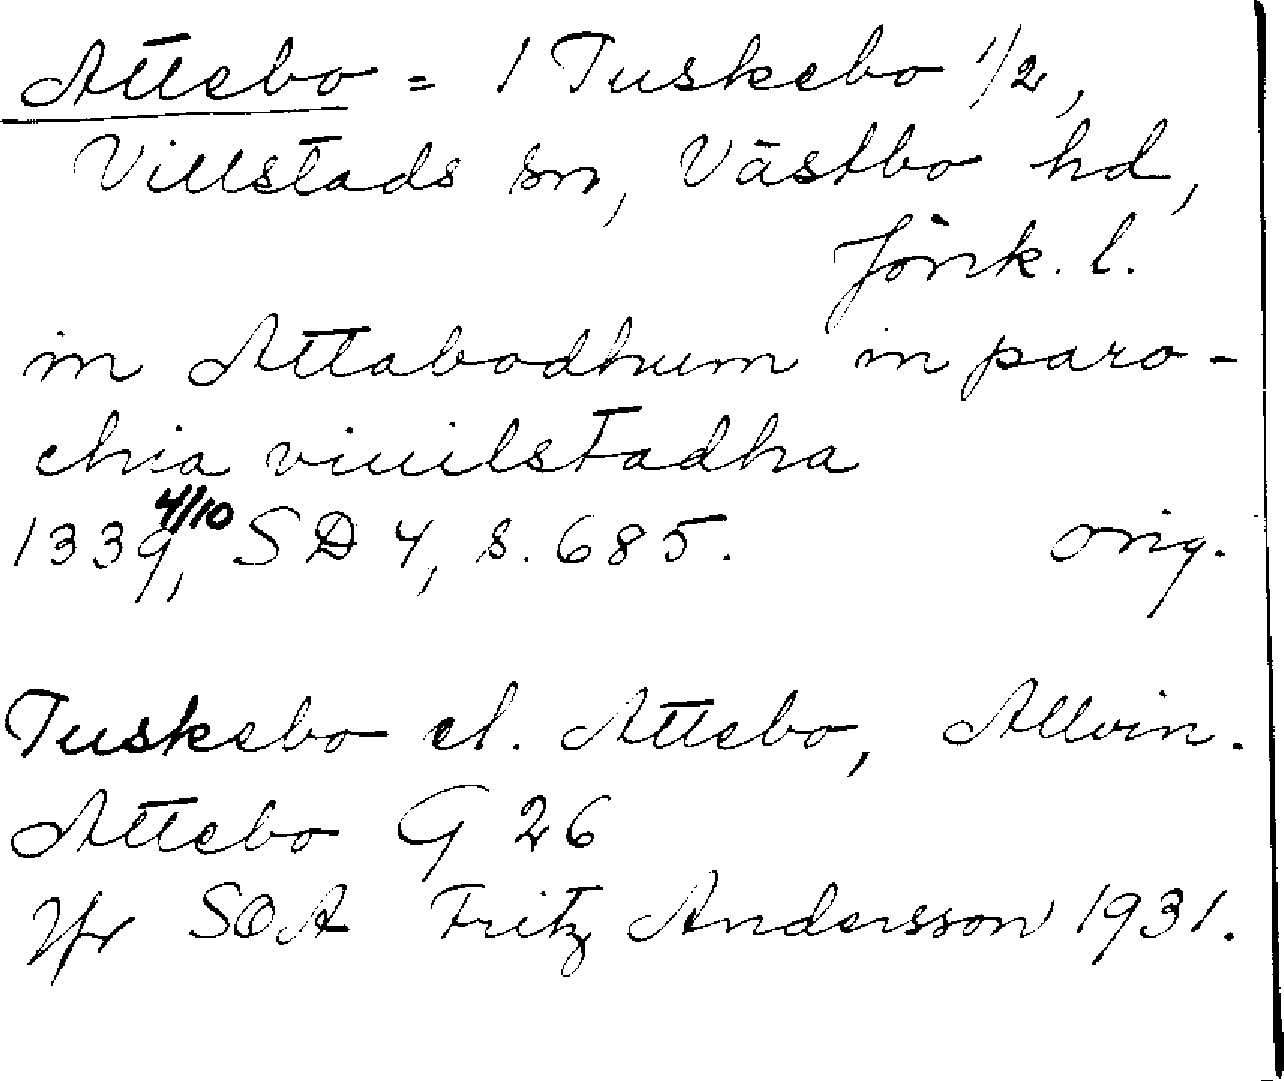 Attebo = 1 Tuskebo 1/2,
Villstads sn, Västbo hd,
Jönk. l.
in Attabodhum in paro-
chia viuilstadha
1339 4/10, SD 4, s. 685. orig.
Tuskebo el. Attebo, Allvin.
Attebo G 26
Jfr SOA Fritz Andersson 1931.